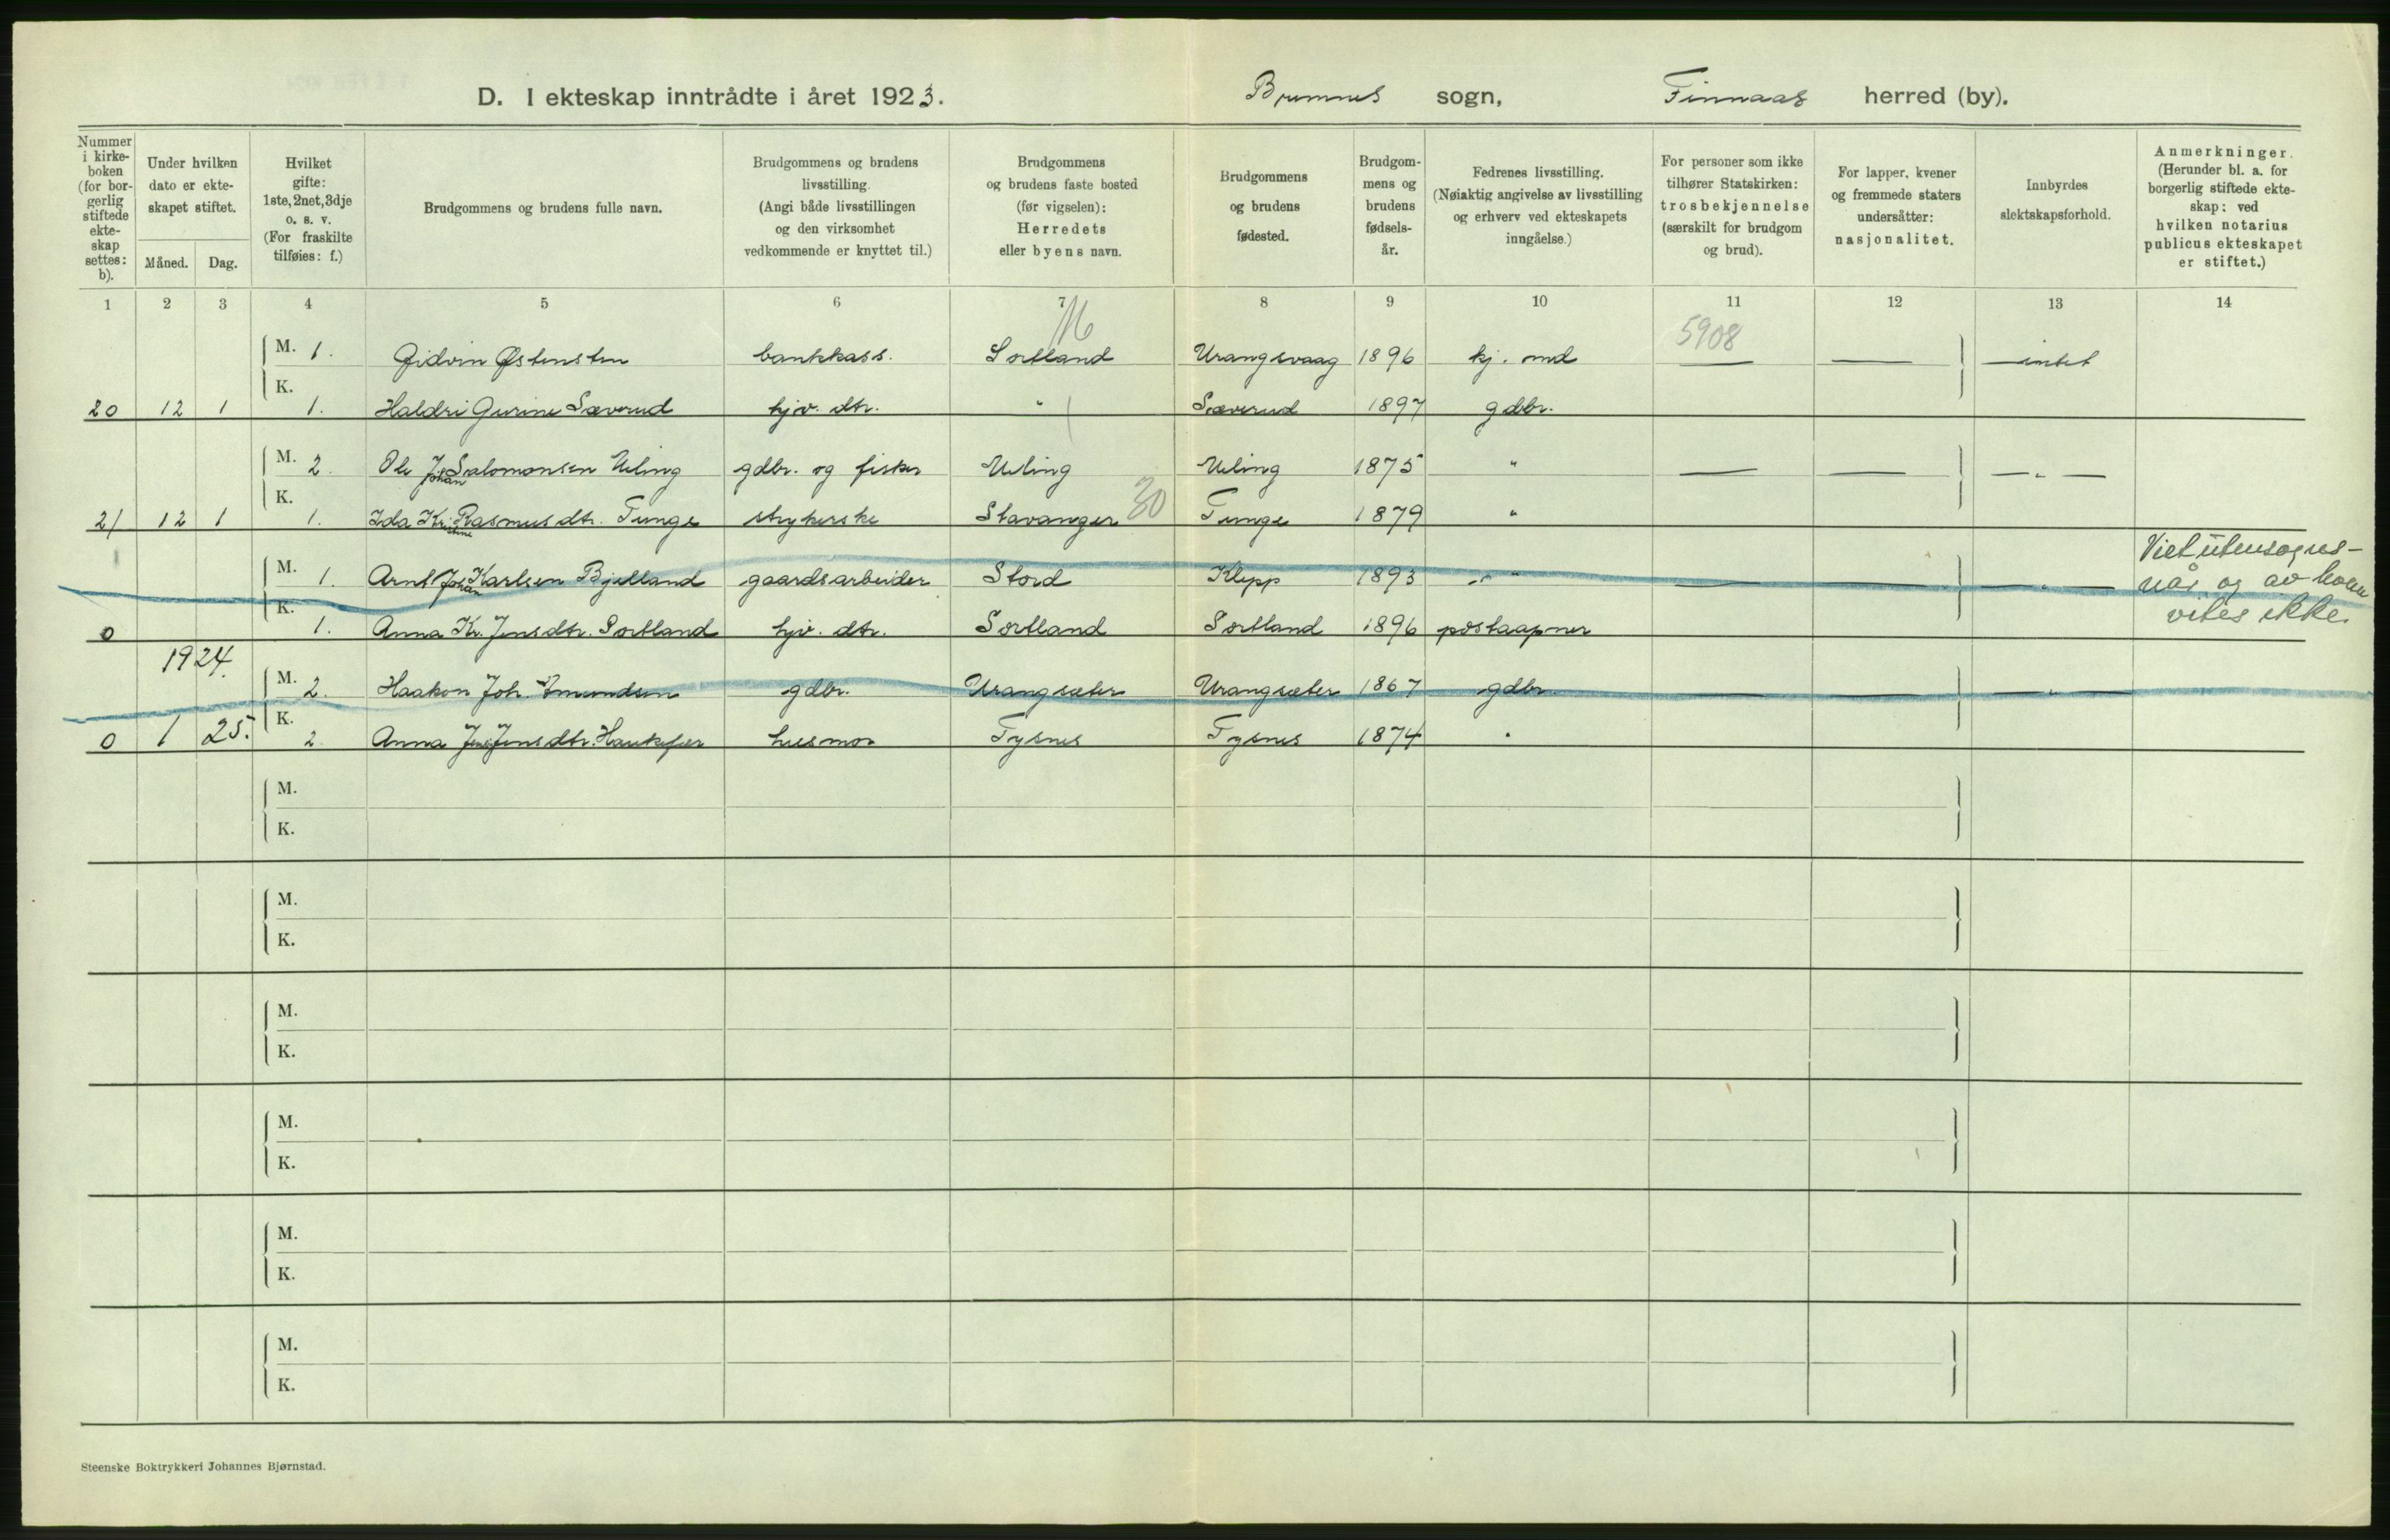 D. I ekteskap inntrådte i året 1923. Bremnes sogn, Finnaas herred (by).
Nummer i kirke- boken (for bor- gerlig stiftede ekte- skap settes: b).
Under hvilken dato er ekte- skapet stiftet.
Måned. Dag.
Hvilket gifte: 1ste, 2net, 3dje o. s. v. (For fraskilte tilføies: f.)
Brudgommens og brudens fulle navn.
Brudgommens og brudens livsstilling. (Angi både livsstillingen og den virksomhet vedkommende er knyttet til.)
Brudgommens og brudens faste bosted (før vigselen): Herredets eller byens navn.
Brudgommens og brudens fødested.
Brudgom- mens og brudens fødsels- år.
Fedrenes livsstilling. (Nøiaktig angivelse av livsstilling og erhverv ved ekteskapets inngåelse.)
For personer som ikke tilhører Statskirken: trosbekjennelse (særskilt for brudgom og brud).
For lapper, kvener og fremmede staters undersåtter: nasjonalitet.
Innbyrdes slektskapsforhold.
Anmerkninger. (Herunder bl. a. for borgerlig stiftede ekte- skap: ved hvilken notarius publicus ekteskapet er stiftet.)
1 2 3 4 5 6 7 8 9 10 11 12 13 14
16 5908
M. 1. Gidvin Østensten bankkass. Sortland Urangsvaag 1896 kj. md — — intet
20 12 1 K. 1. Haldri Gurine Sæverud hjv. dtr. " Sæverud 1897 gdbr.
M. 2. Ole Johan Salomonsen Urling gdbr. og fisker Urling Urling 1875 " — — — " —
21 12 1 K. 1. Ida Kristine Rasmusdtr. Tunge strykerske Stavanger 30 Tunge 1879 "
M. 1. Arnt Johan Karlsen Bjelland gaardsarbeider Stord Klepp 1893 " — — — " — Viet utensognes-
når og av hvem
0 K. 1. Anna Kr. Jensdtr. Sortland hjv. dtr. Sortland Sortland 1896 postaapner vites ikke.
1924.
M. 2. Haakon Joh. Amundsen gdbr. Urangsæter Urangsæter 1867 gdbr — — — " —
0 1 25. K. 2. Anna Jensdtr. Haukefær husmor Tysnes Tysnes 1874 "
M.
K.
M.
K.
M.
K.
M.
K.
M.
K.
M.
K.
Steenske Boktrykkeri Johannes Bjørnstad.